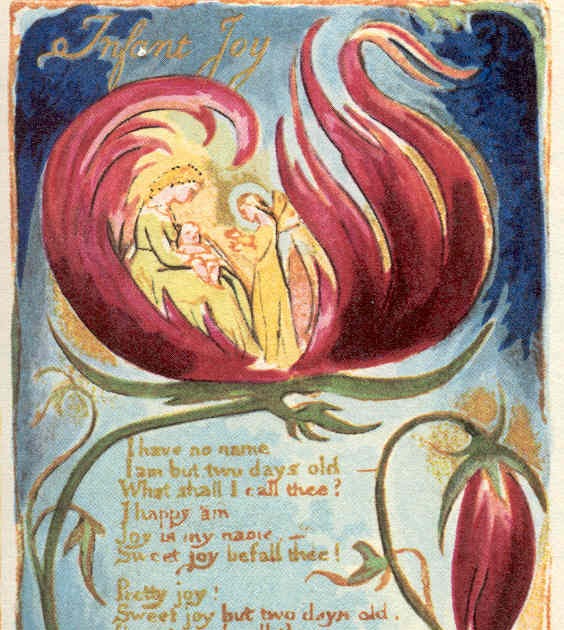 Infant Joy
I have no name
I am but two days old —
What shall I call thee?
I happy am
Joy is my name, —
Sweet joy befall thee!
Pretty joy!
Sweet joy but two days old.